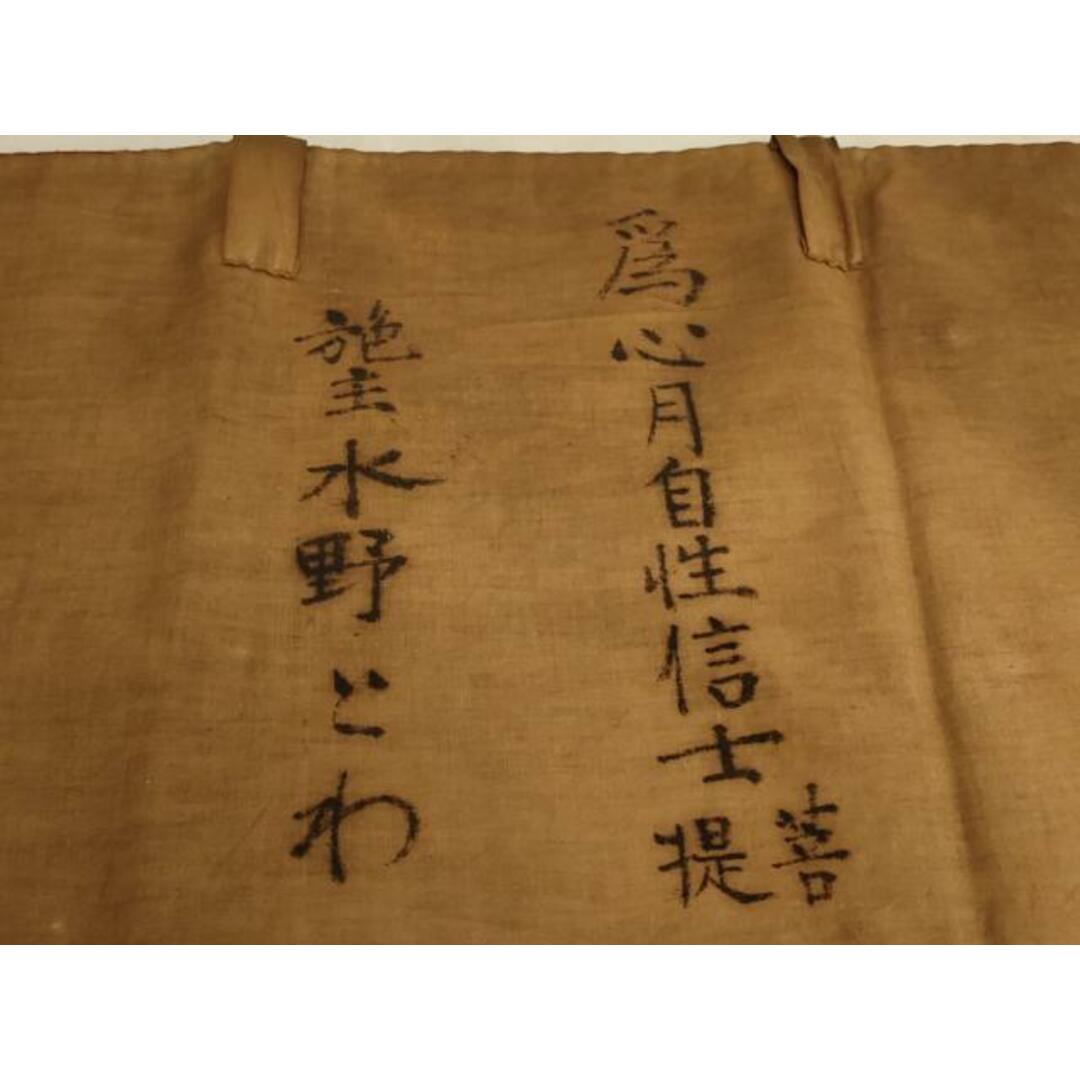 爲心月自性信士菩提
施主水野とわ